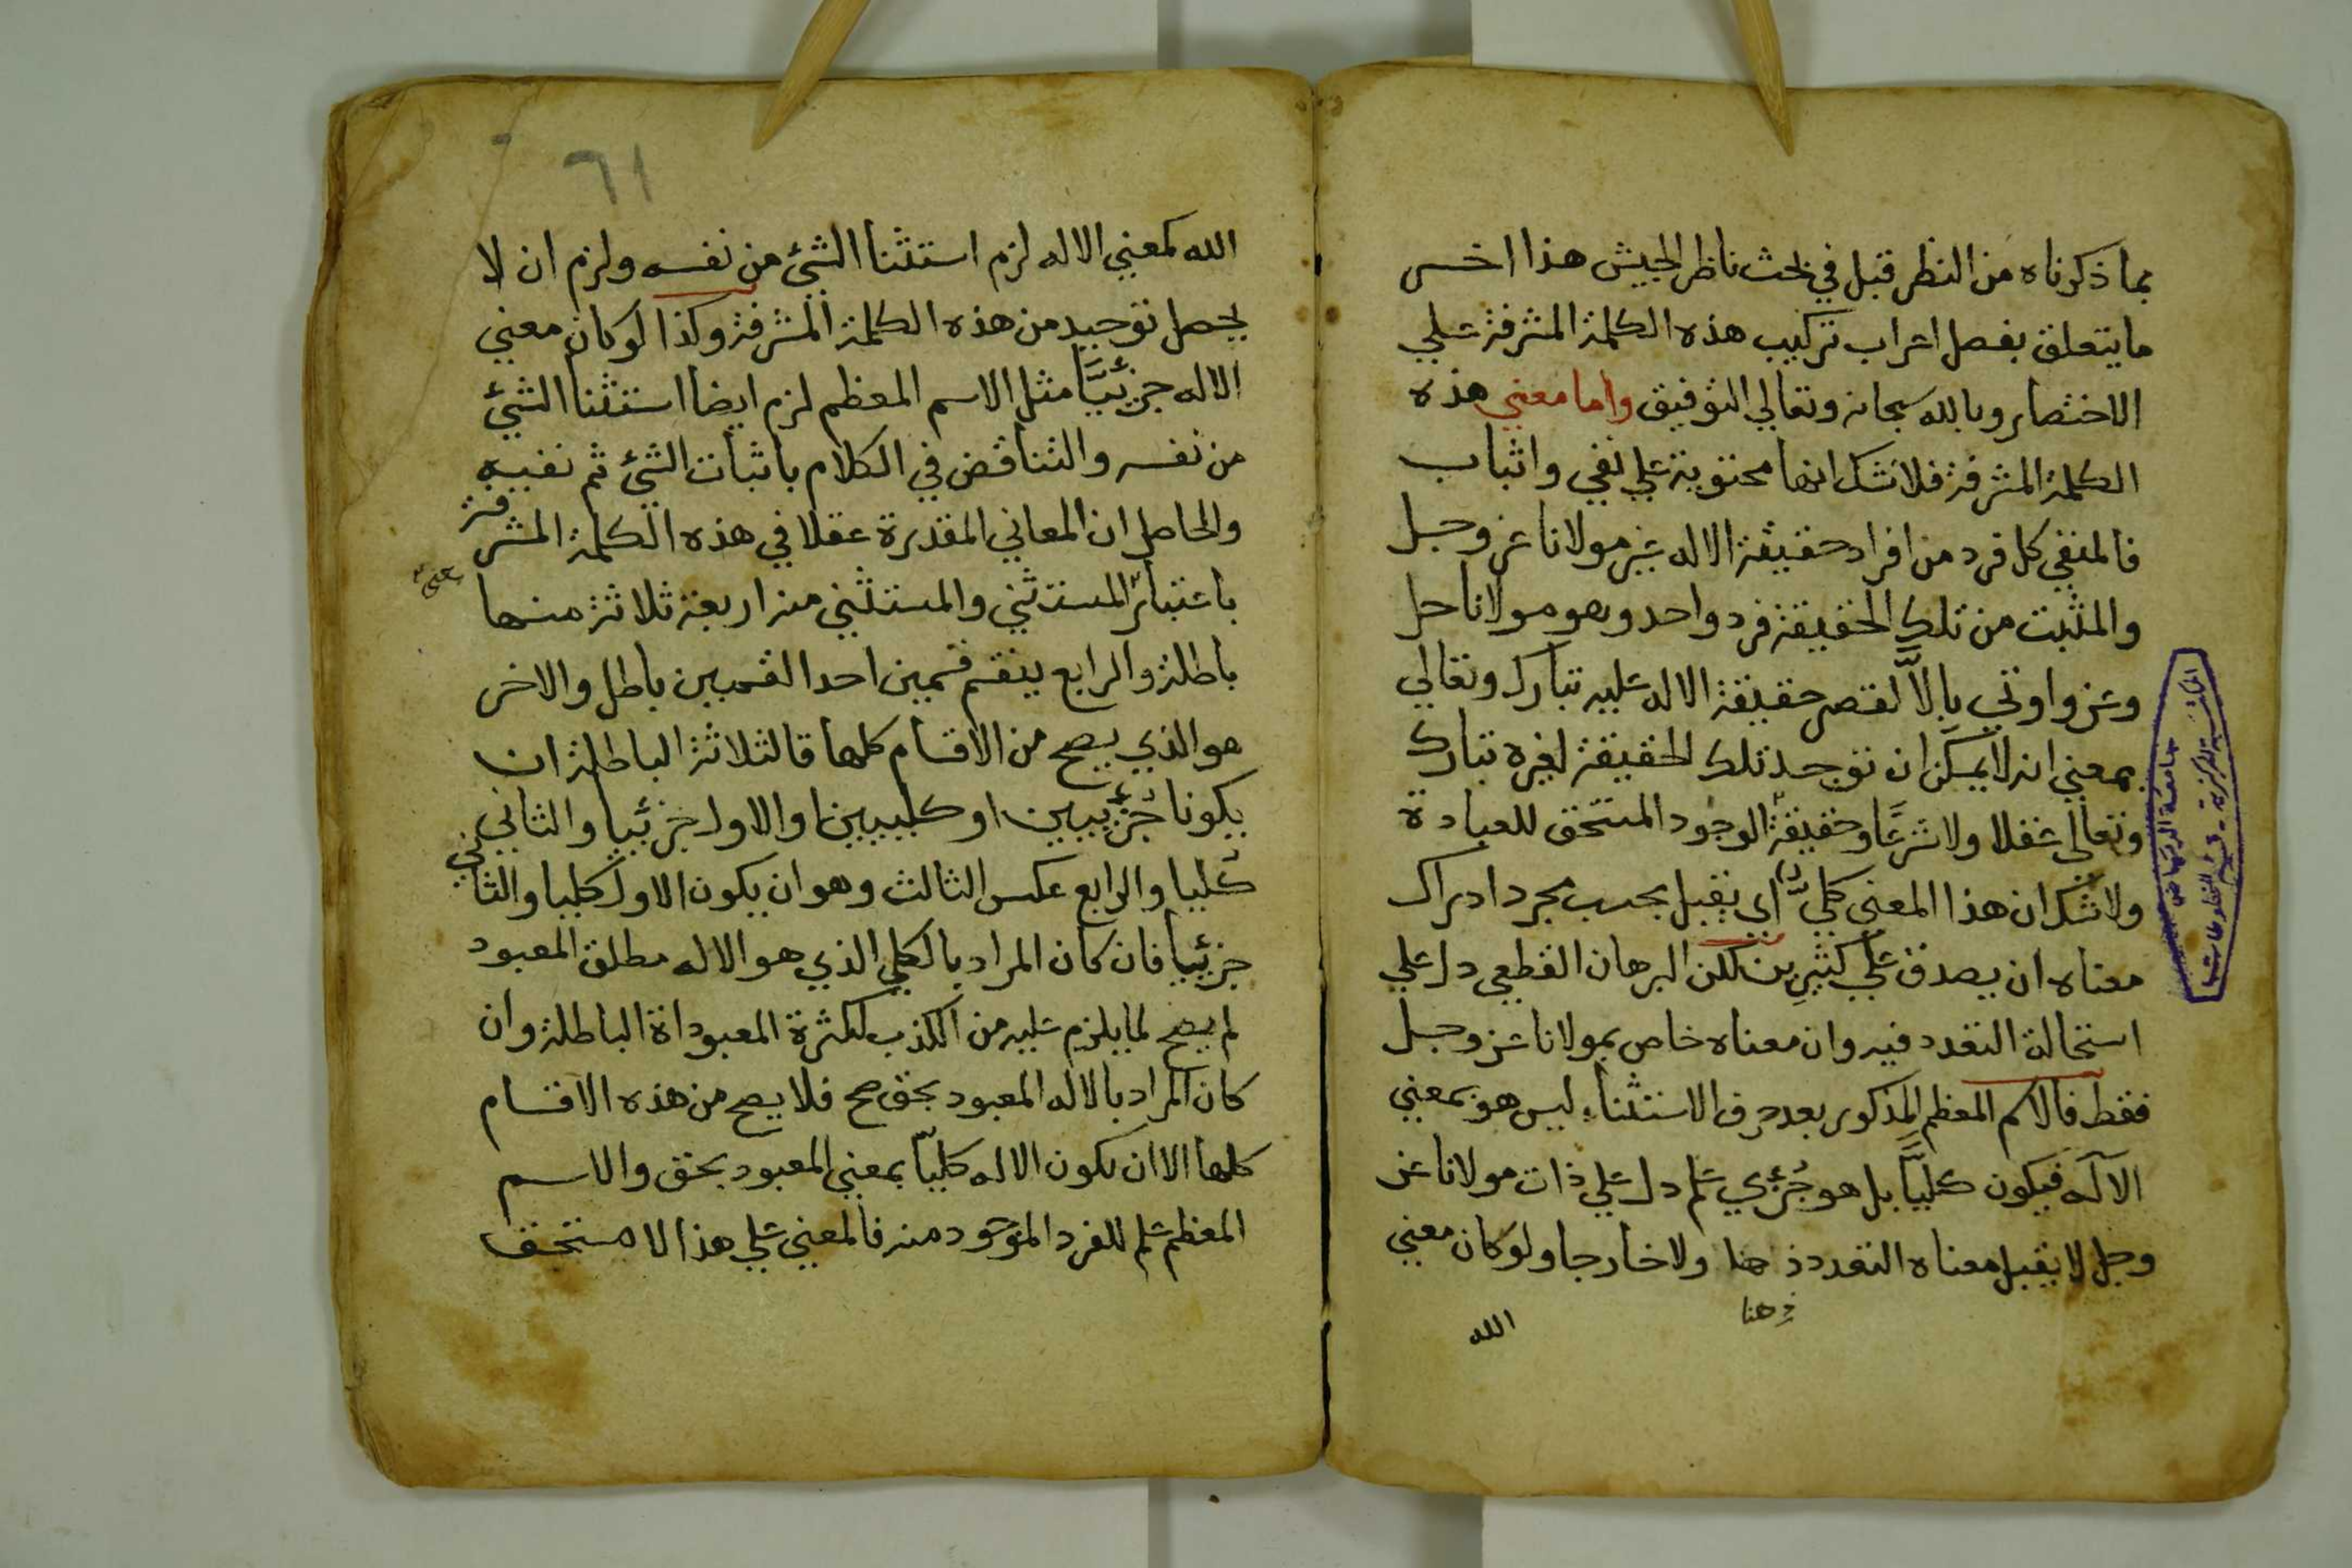 بما ذكرناه من النظر قبل في بحث ناظر الجيش هذا اخر
ما يتعلق بفصل اعراب تركيب هذه الكلمة المشرفة علي
الاختصار وبالله سبحانه وتعالي التوفيق واما معني هذه
الكلمة المشرفة فلا شك انها محتوية علي نفي واثبات
فالمنفي كل فرد من افراد حقيقة الاله غير مولانا عز وجل
والمثبت من تلك الحقيقة فرد واحد وهو مولانا جل
وعز واوتي بالاّ لقصر حقيقة الاله عليه تبارك وتعالي
بمعني انه لا يمكن ان توجد تلك الحقيقة لغيره تبارك
وتعالي عقلا ولا شرعًا وحقيقة الوجود المستحق للعبادة
ولا شك ان هذا المعني كليّ اي يقبل بحسب مجرد ادراك
معناه ان يصدق علي كثيرين لكن البرهان القطعي دل علي
استحالة التعدد فيه وان معناه خاص بمولانا عز وجل
فقط فالاسم المعظم المذكور بعد حرف الاستثناء ليس هو بمعني
الاله فيكون كليًّا بل هو جُزئي علم دل علي ذات مولانا عز
وجل لا يقبل معناه التعدد ذهنا ولا خارجا ولو كان معني
ذهنا
الله
جامعة الرياض
المكتبة المركزية - قسم المخطوطات
٦١
الله كمعني الاله لزم استثنا الشئ من نفسه ولزم ان لا
يحصل توحيد من هذه الكلمة المشرفة وكذا لو كان معني
الاله جزئيًّا مثل الاسم المعظم لزم ايضا استثنا الشئ
من نفسه والتناقض في الكلام باثبات الشئ ثم نفيه
والحاصل ان المعاني المقدرة عقلا في هذه الكلمة المشرفة
باعتبار المستثني والمستثني منه اربعة ثلاثة منها
باطلة والرابع ينقسم قسمين احد القسمين باطل والاخر
هو الذي يصح من الاقسام كلها فالثلاثة الباطلة ان
يكونا جُزئيين او كليين او الاول جزئيا والثاني
كليا والرابع عكس الثالث وهو ان يكون الاول كليا والثاني
جزئيا فان كان المراد بالكلي الذي هو الاله مطلق المعبود
لم يصح لما يلزم عليه من الكذب لكثرة المعبوداة الباطلة وان
كان المراد بالاله المعبود بحق صح فلا يصح من هذه الاقسام
كلها الا ان يكون الاله كليّا بمعني المعبود بحق والاسم
المعظم علم للفرد الموجود منه فالمعني علي هذا لا مستحق